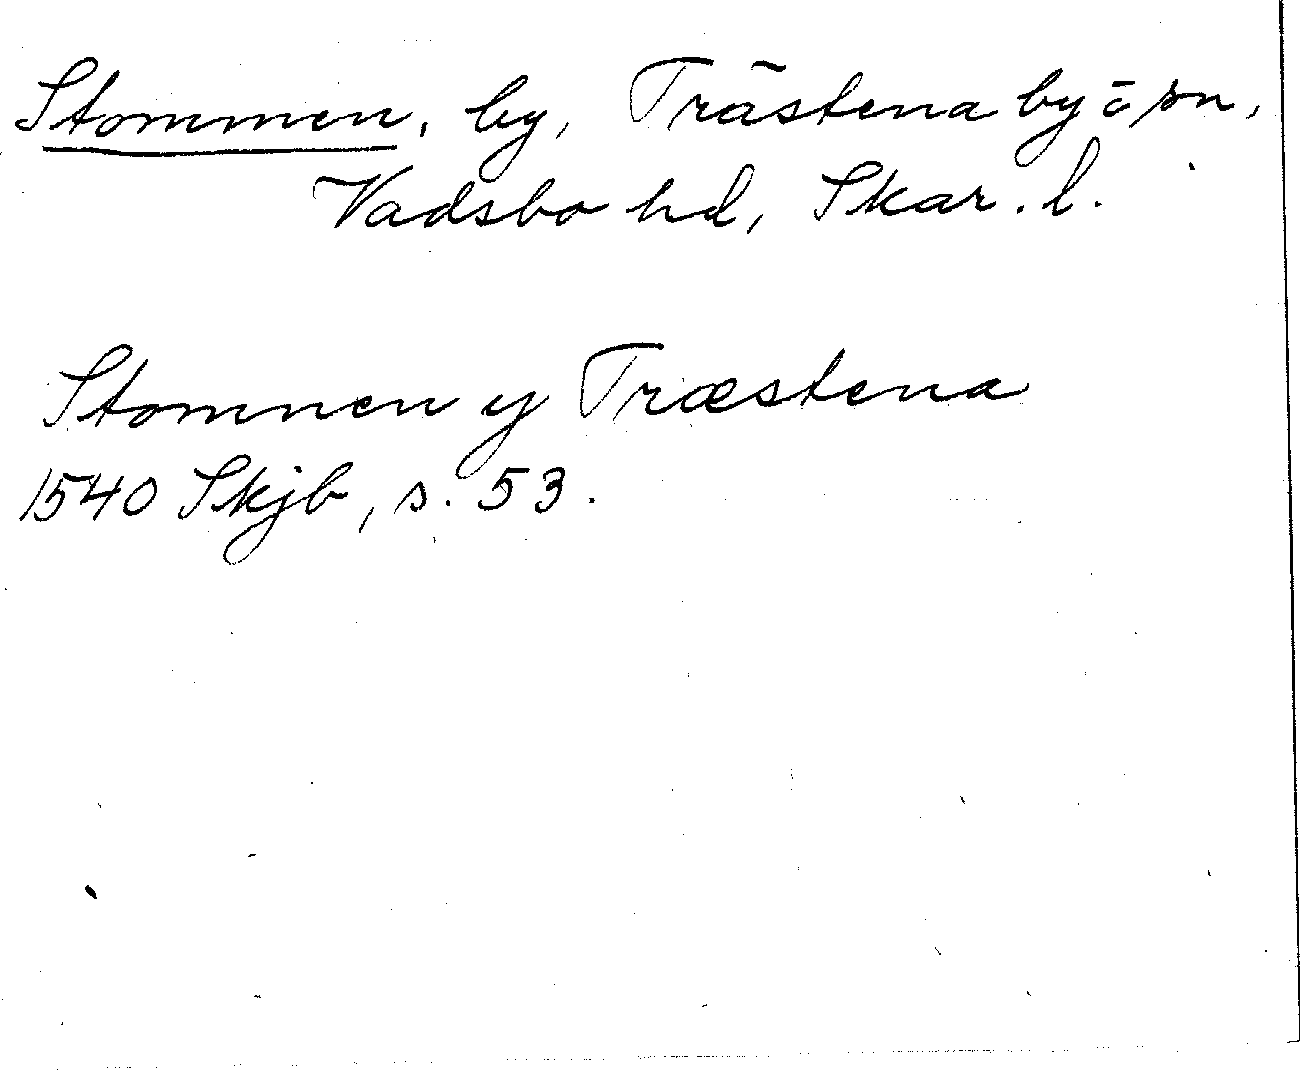 Stommen, by, Trästena by o sn,
Vadsbo hd, Skar. l.
Stomnen y Træstena
1540 Skjb, s. 53.